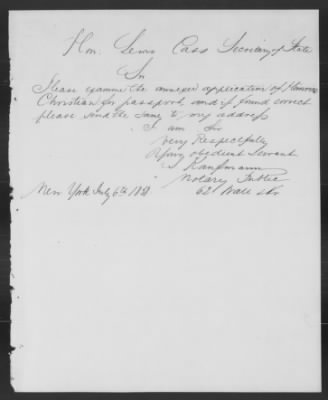 Hon. Lewis Cass Secretary of State
Sir
Please examine the annexed application of
Christian for passport, and if found correct
please send the same to my address
I am Sir
Very Respectfully
Your obedient Servant
Kaufmann
Notary Public
New York July 6th
62 Wall str